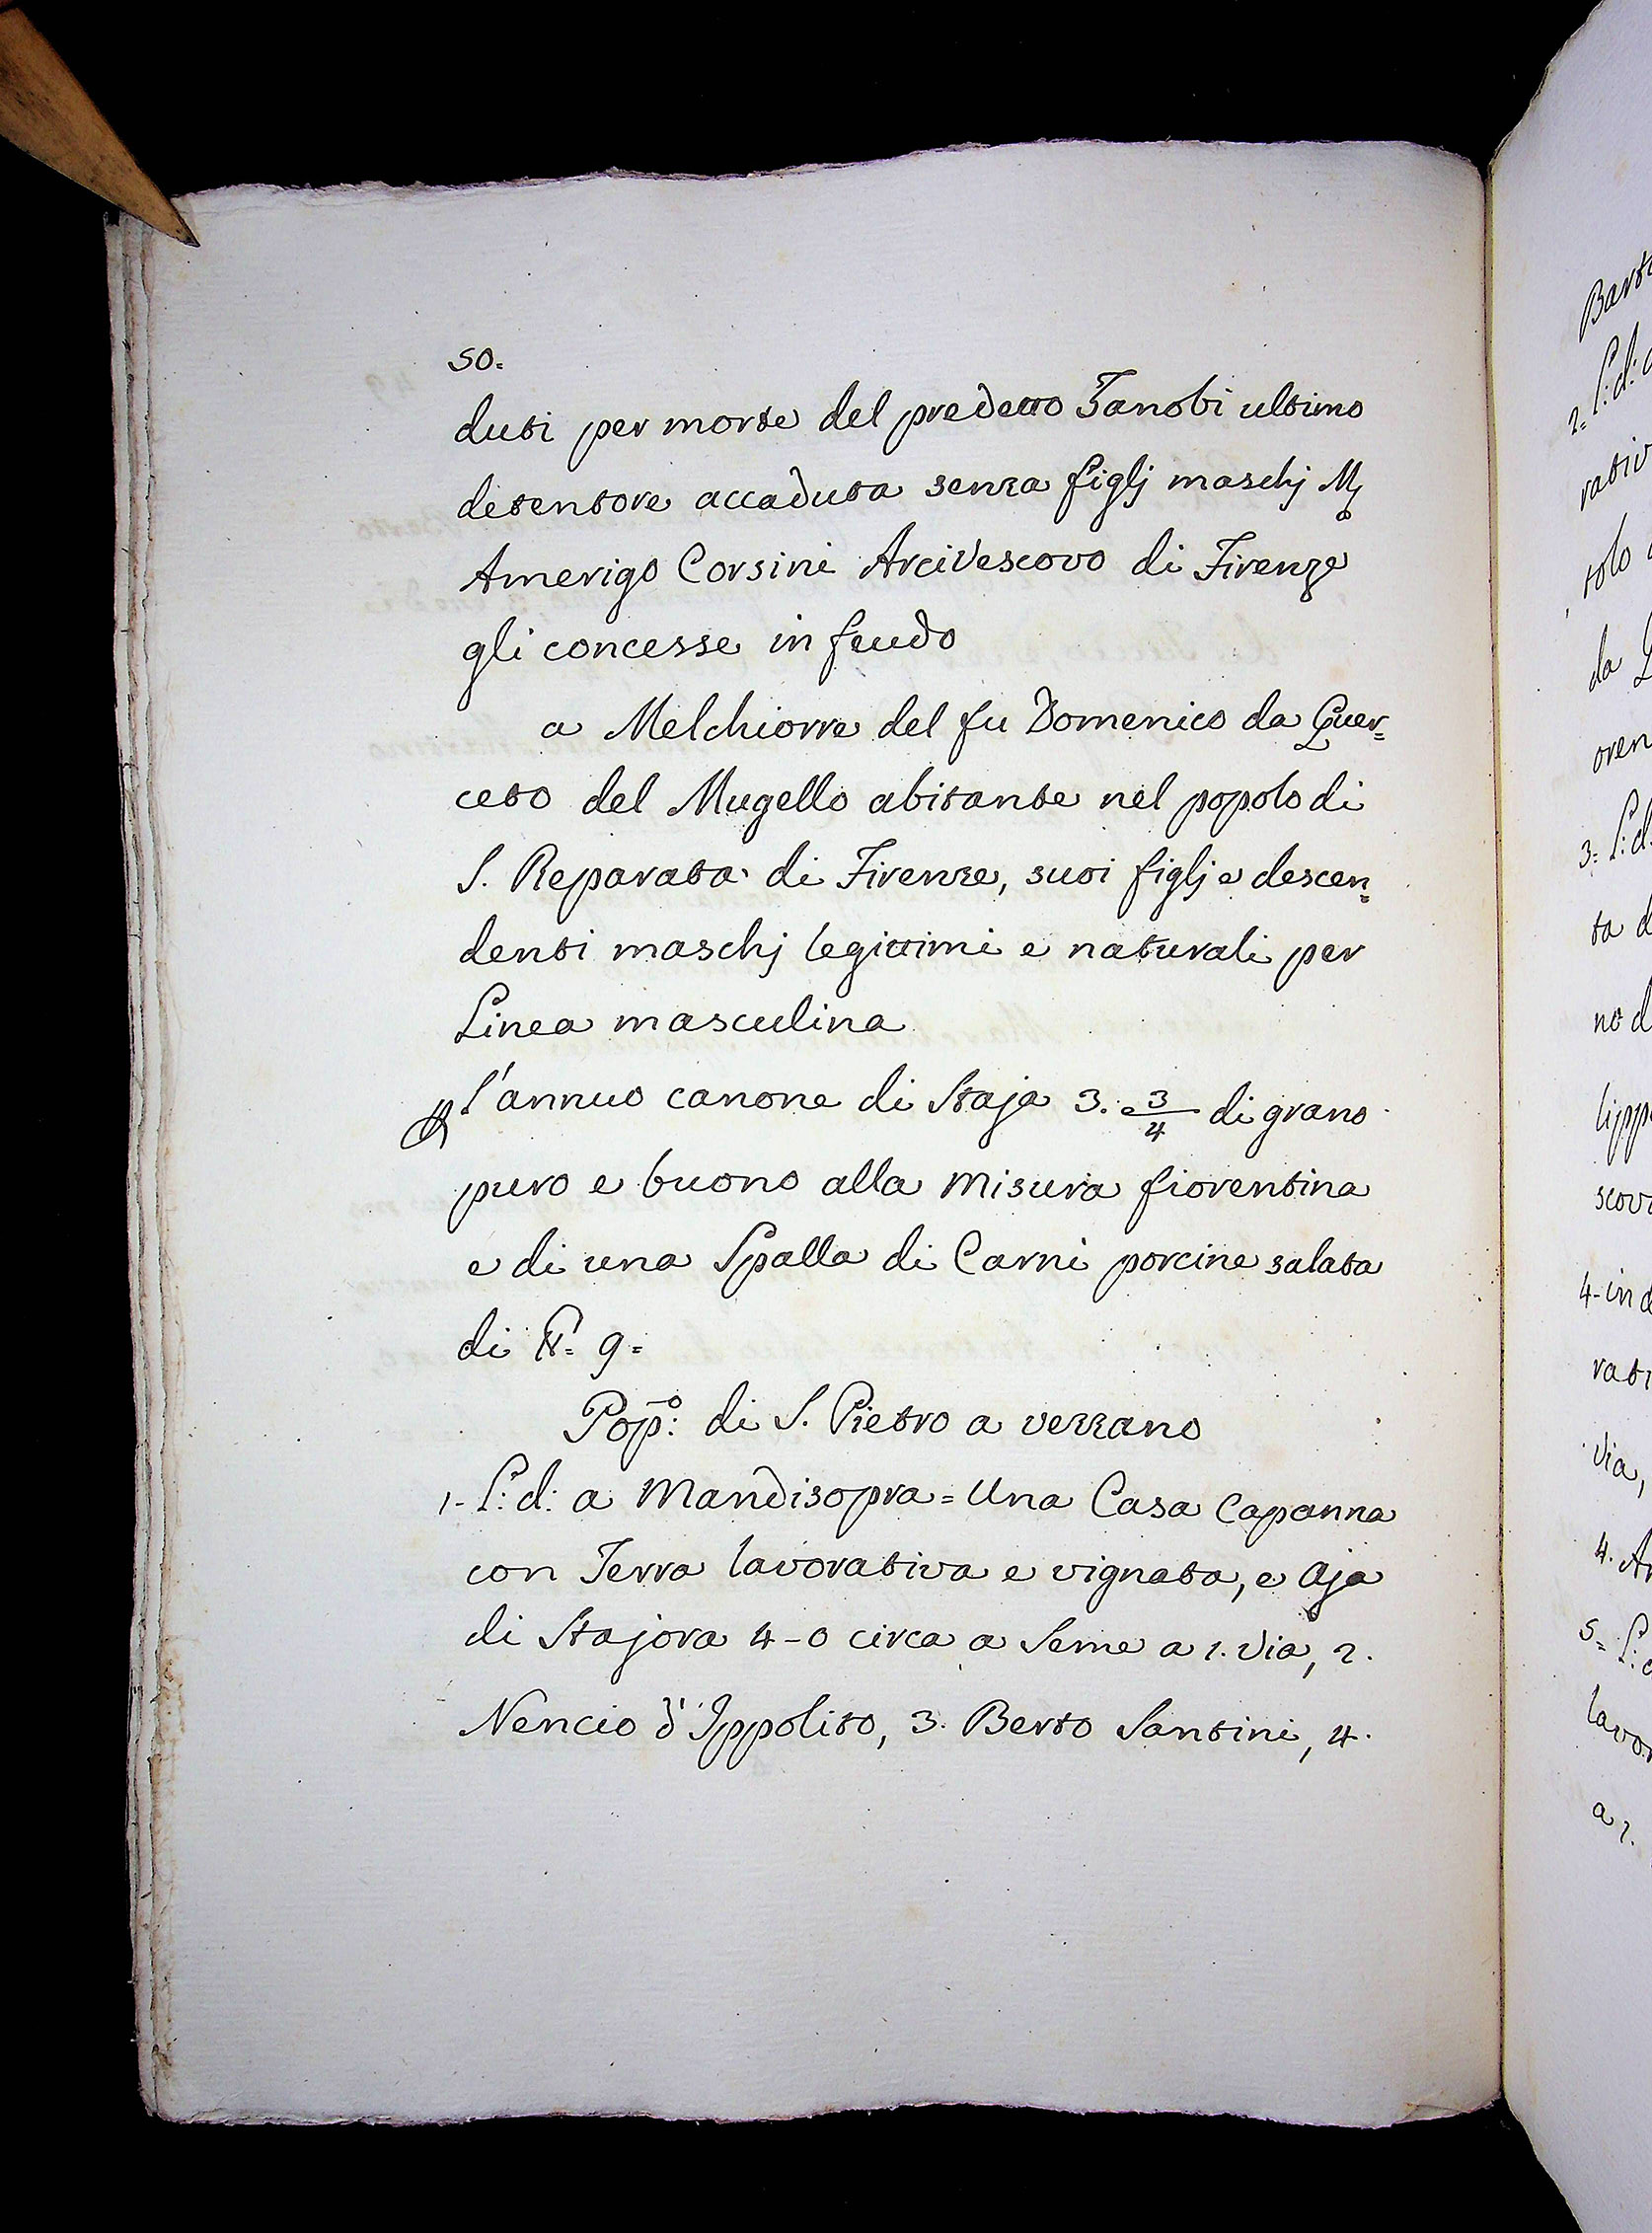 50.
duti per morte del predetto Zanobi ultimo
detentore accaduta senza figlj maschj M
Amerigo Corsini Arcivescovo di Firenze
gli concesse in feudo
a Melchiorre del fu Domenico da Quer=
ceto del Mugello abitante nel popolo di
S. Reparata di Firenze, suoi figlj e descen=
denti maschj legittimi e naturali per
Linea masculina
l'annuo canone di Staja 3. 3/4 di grano
puro e buono alla misura fiorentina
e di una Spalla di Carni porcine salata
di 9=
Pop:o di S. Pietro a vezzano
1- L: d: a Mandisopra = Una Casa Capanna
con Terra lavorativa e vignata, e Aja
di Stajora 4-0 circa a Seme a 1. Via, 2.
Nencio d'Ippolito, 3. Berto Santini, 4.